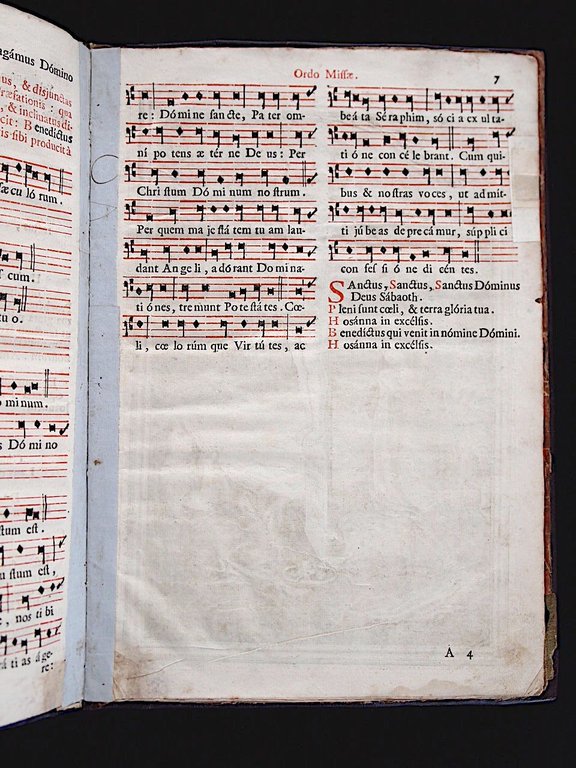 agámus Dómino
us, & disjunctas
ræfationis: qua
, & inclinatus di-
cit: Benedictus
is sibi producit à
æ cu ló rum.
ſ cum.
tu o.
o mi num.
s Dó mi no
ſtum eſt.
u ſtum eſt,
e, nos ti bi
á ti as á ge-
re:
Ordo Miſſæ. 7
re: Dó mi ne ſan cte, Pa ter om-
ní po tens æ tér ne De us: Per
Chri ſtum Dó mi num no ſtrum.
Per quem ma je ſtá tem tu am lau-
dant An ge li, a dó rant Do mi na-
ti ó nes, tre munt Po te ſtá tes. Cœ-
li, cœ lo rúm que Vir tú tes, ac
be á ta Sé ra phim, só ci a ex ul ta-
ti ó ne con cé le brant. Cum qui-
bus & no ſtras vo ces, ut ad mit-
ti jú be as de pre cá mur, súp pli ci
con feſ ſi ó ne di cén tes.
SAnctus, Sanctus, Sanctus Dóminus
Deus Sábaoth.
Pleni ſunt cœli, & terra glória tua.
Hoſánna in excélſis.
Benedíctus qui venit in nómine Dómini.
Hoſánna in excélſis.
A 4